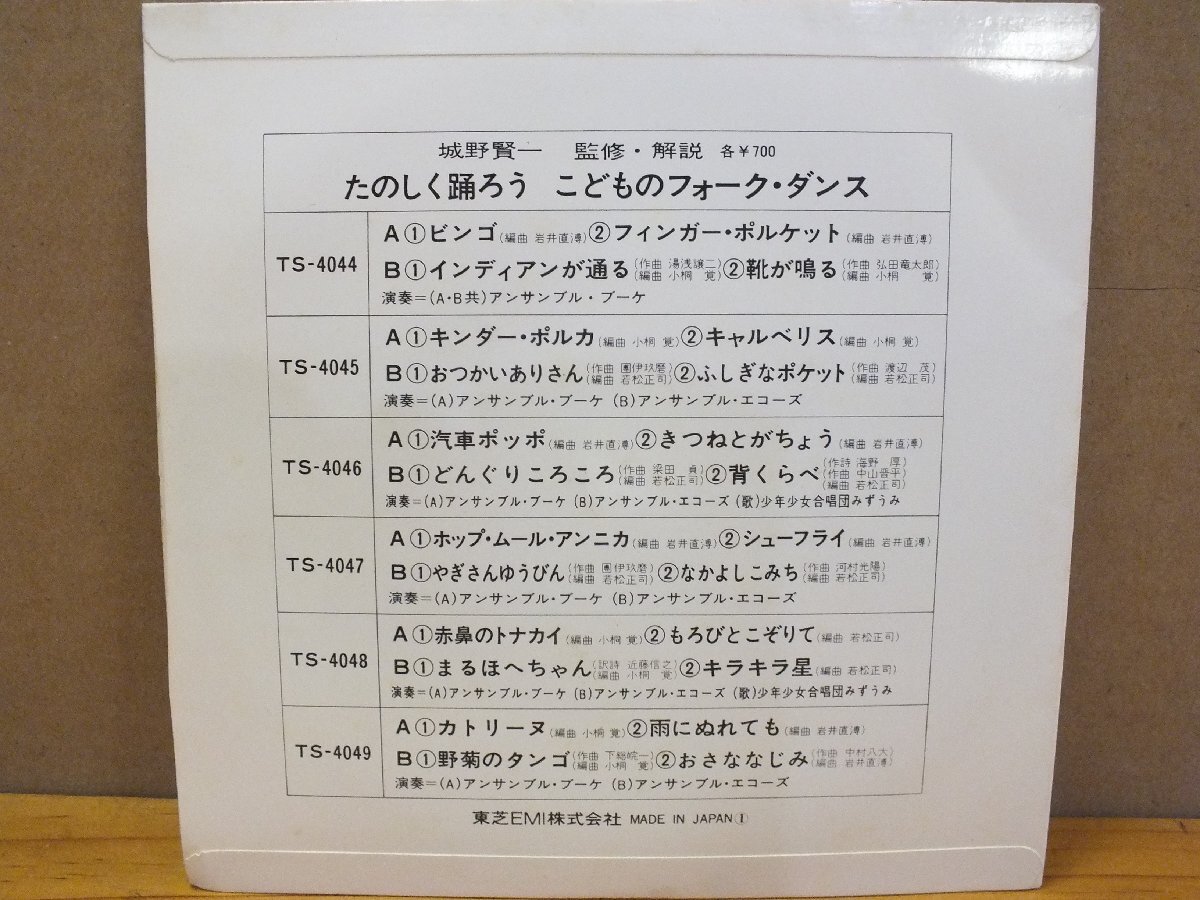 城野賢一 監修・解説 各¥700
たのしく踊ろう こどものフォーク・ダンス
TS-4044
A①ビンゴ(編曲 岩井直溥)②フィンガー・ポルケット(編曲 岩井直溥)
B①インディアンが通る(作曲 湯浅譲二)(編曲 小桐 覚)②靴が鳴る(作曲 弘田竜太郎)(編曲 小桐 覚)
演奏=(A・B共)アンサンブル・ブーケ
TS-4045
A①キンダー・ポルカ(編曲 小桐 覚)②キャルベリス(編曲 小桐 覚)
B①おつかいありさん(作曲 團伊玖磨)(編曲 若松正司)②ふしぎなポケット(作曲 渡辺 茂)(編曲 若松正司)
演奏=(A)アンサンブル・ブーケ (B)アンサンブル・エコーズ
TS-4046
A①汽車ポッポ(編曲 岩井直溥)②きつねとがちょう(編曲 岩井直溥)
B①どんぐりころころ(作曲 梁田 貞)(編曲 若松正司)②背くらべ(作詩 海野 厚)(作曲 中山晋平)(編曲 若松正司)
演奏=(A)アンサンブル・ブーケ (B)アンサンブル・エコーズ (歌)少年少女合唱団みずうみ
TS-4047
A①ホップ・ムール・アンニカ(編曲 岩井直溥)②シューフライ(編曲 岩井直溥)
B①やぎさんゆうびん(作曲 團伊玖磨)(編曲 若松正司)②なかよしこみち(作曲 河村光陽)(編曲 若松正司)
演奏=(A)アンサンブル・ブーケ (B)アンサンブル・エコーズ
TS-4048
A①赤鼻のトナカイ(編曲 小桐 覚)②もろびとこぞりて(編曲 若松正司)
B①まるほへちゃん(訳詩 近藤信之)(編曲 小桐 覚)②キラキラ星(編曲 若松正司)
演奏=(A)アンサンブル・ブーケ (B)アンサンブル・エコーズ (歌)少年少女合唱団みずうみ
TS-4049
A①カトリーヌ(編曲 小桐 覚)②雨にぬれても(編曲 岩井直溥)
B①野菊のタンゴ(作曲 下総皖一)(編曲 小桐 覚)②おさななじみ(作曲 中村八大)(編曲 岩井直溥)
演奏=(A)アンサンブル・ブーケ (B)アンサンブル・エコーズ
東芝EMI株式会社 MADE IN JAPAN①